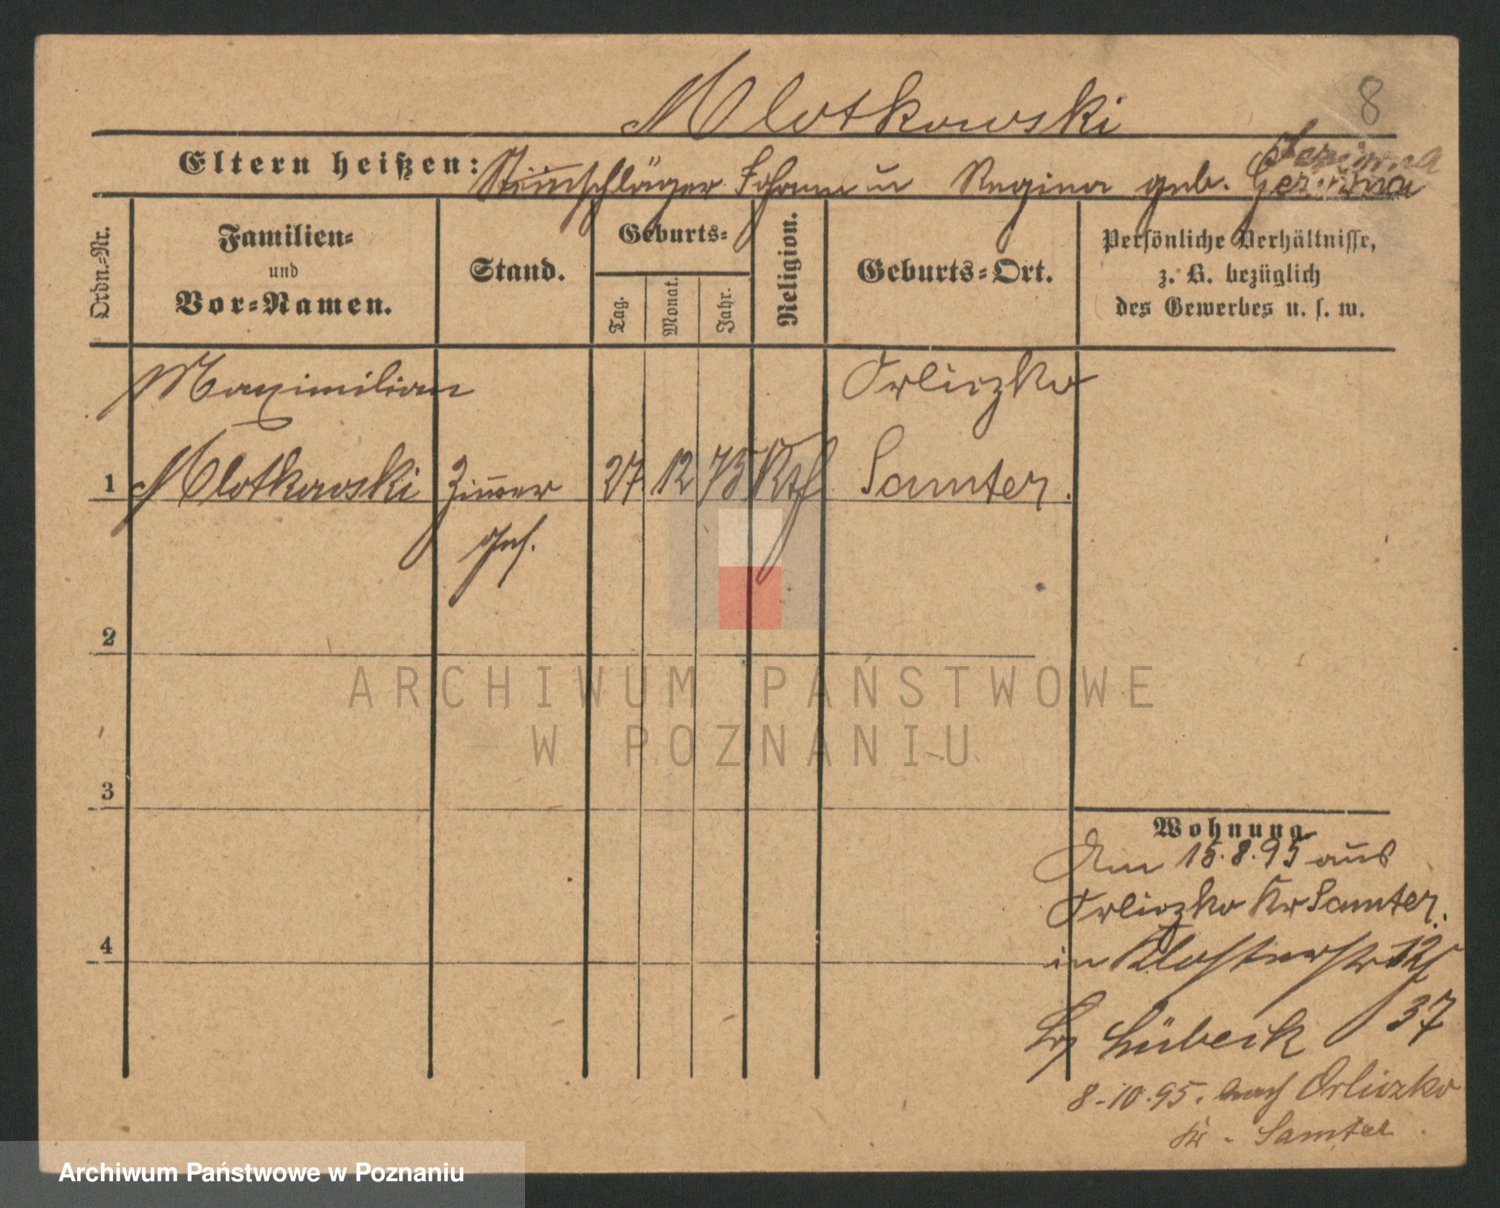 8
Mlotkowski
Eltern heißen: Steinschläger Johann u Regina geb.
Ordn.-Nr.
Familien-
und
Vor-Namen.
Stand.
Geburts-
Tag.
Monat.
Jahr.
Religion.
Geburts-Ort.
Persönliche Verhältnisse,
z. B. bezüglich
des Gewerbes u. s. w.
Maximilian
Orliczko
1 Mlotkowski Zimmer 27 12 75 Kth Samter.
Ges.
2
3
4
ARCHIWUM PAŃSTWOWE
W POZNANIU
Wohnung
Am 15.8.95 aus
Orliczko Kr Samter.
in Klosterstr 12
Lübeck 37
8-10.95. nach Orliczko
Kr - Samter
Archiwum Państwowe w Poznaniu